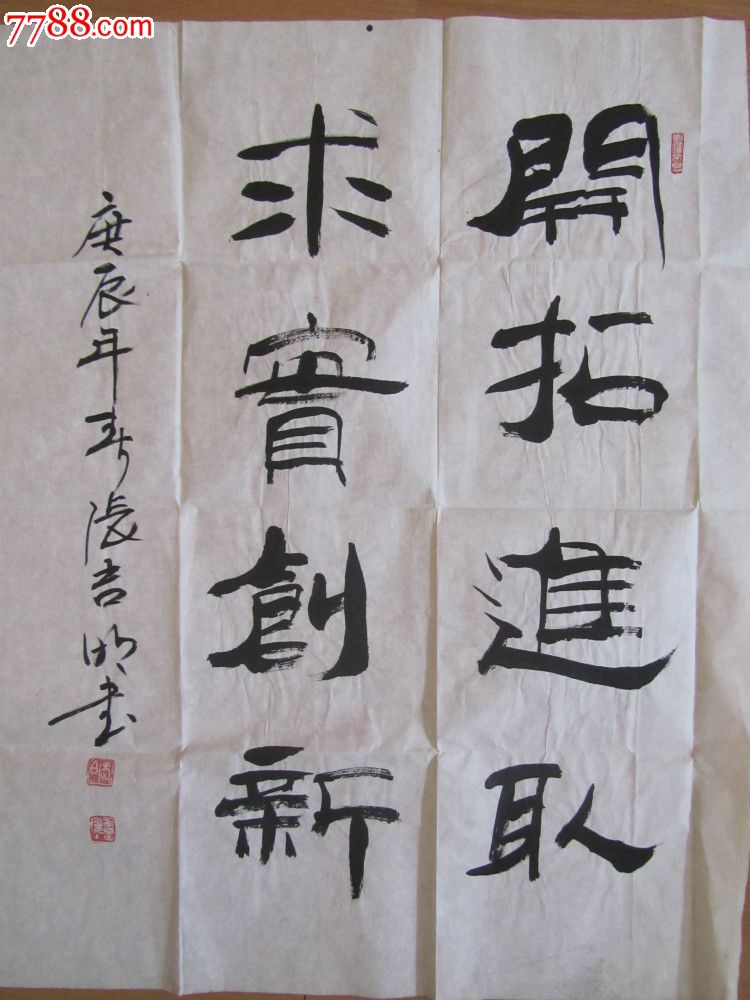 7788.com
開拓進取
求實創新
庚辰年春張吉明书